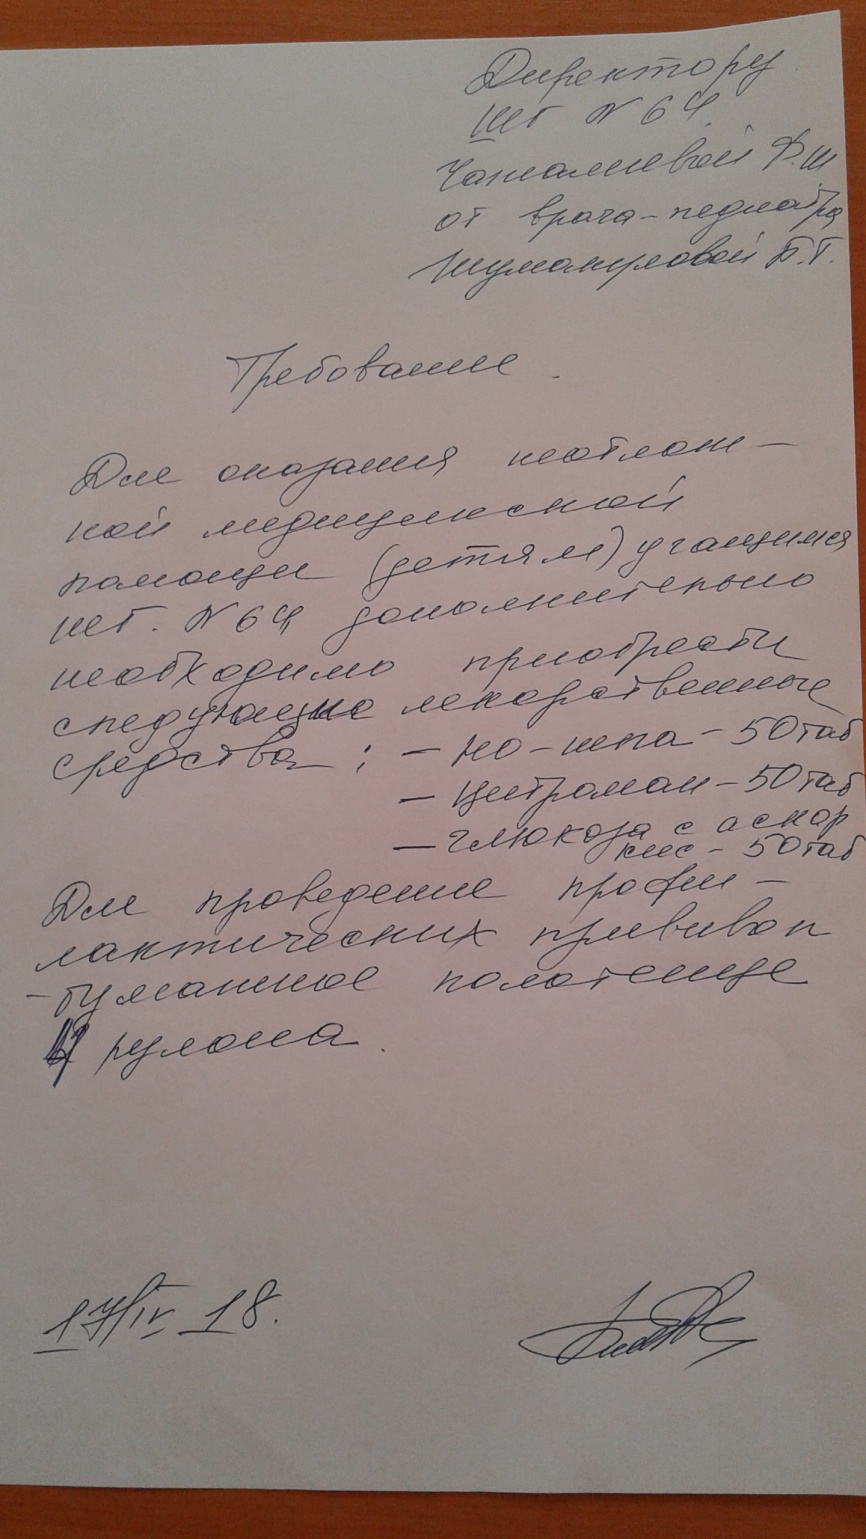 Директору
ШГ N 64
от врача-педиатра
Шумануловой Б.Т.
Требование.
Для оказания неотлож-
ной медицинской
помощи (детям) учащимся
ШГ. N 64 дополнительно
необходимо приобрести
следующие лекарственные
средства: - Но-шпа - 50 таб
- Цитрамон - 50 таб
- глюкоза с аскор
кис - 50 таб
Для проведение профи-
лактических прививок
- бумажное полотенце
4 рулона.
17/IV 18.